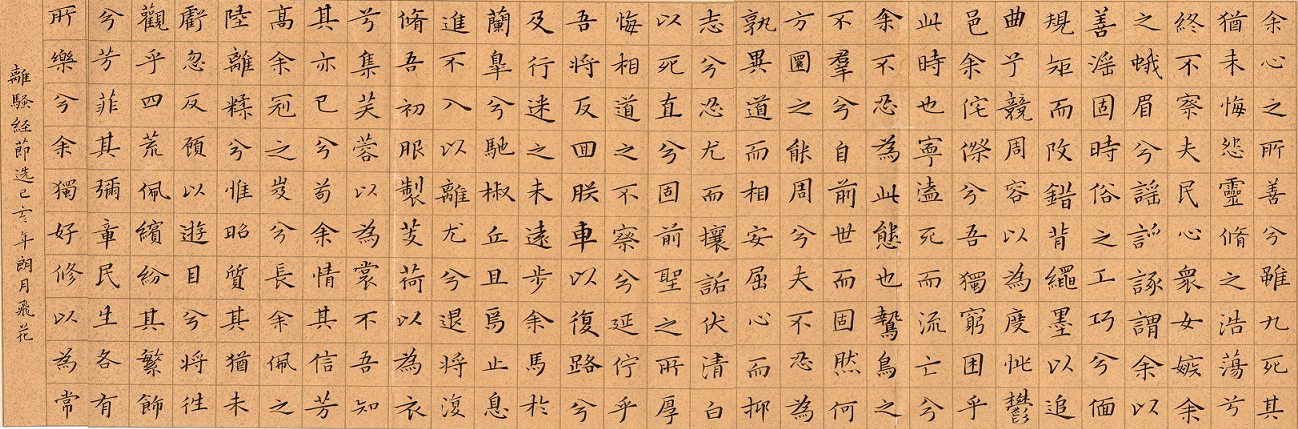 余心之所善兮雖九死其
猶未悔怨靈脩之浩蕩兮
終不察夫民心衆女嫉余
之蛾眉兮謠諂諑謂余以
善滛固時俗之工巧兮偭
規矩而改錯背繩墨以追
曲兮競周容以為度忳鬱
邑余侘傺兮吾獨窮困乎
此時也寧溘死而流亡兮
余不忍為此態也鷙鳥之
不羣兮自前世而固然何
方圜之能周兮夫不忍為
孰異道而相安屈心而抑
志兮忍尤而攘詬伏清白
以死直兮固前聖之所厚
悔相道之不察兮延佇乎
吾將反回朕車以復路兮
及行迷之未遠步余馬於
蘭皋兮馳椒丘且焉止息
進不入以離尤兮退將復
脩吾初服製芰荷以為衣
兮集芙蓉以為裳不吾知
其亦已兮苟余情其信芳
高余冠之岌兮長余佩之
陸離糅兮惟昭質其猶未
虧忽反顧以遊目兮將往
觀乎四荒佩繽紛其繁飾
兮芳菲其彌章民生各有
所樂兮余獨好修以為常
離騷経節选己亥年朗月飛花